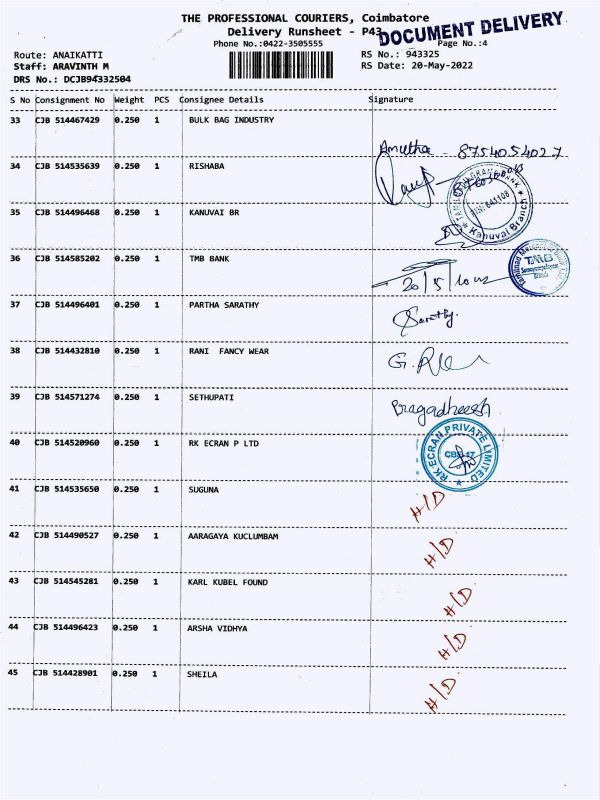 THE PROFESSIONAL COURIERS, Coimbatore
Delivery Runsheet - P43
DOCUMENT DELIVERY
Phone No.:0422-3505555 Page No.:4
Route: ANAIKATTI RS No.: 943325
Staff: ARAVINTH M RS Date: 20-May-2022
DRS No.: DCJB94332504
S No Consignment No Weight PCS Consignee Details Signature
33 CJB 514467429 0.250 1 BULK BAG INDUSTRY
Amutha - 8754054027
34 CJB 514535639 0.250 1 RISHABA
35 CJB 514496468 0.250 1 KANUVAI BR
641108
Kanuvai Branch
36 CJB 514585202 0.250 1 TMB BANK
TMB
Branch
37 CJB 514496401 0.250 1 PARTHA SARATHY
Sarathy.
38 CJB 514432810 0.250 1 RANI FANCY WEAR
39 CJB 514571274 0.250 1 SETHUPATI
Bragadheesh
40 CJB 514520960 0.250 1 RK ECRAN P LTD
RK ECRAN PRIVATE LIMITED
41 CJB 514535650 0.250 1 SUGUNA
H/D
42 CJB 514490527 0.250 1 AARAGAYA KUCLUMBAM
H/D
43 CJB 514545281 0.250 1 KARL KUBEL FOUND
H/D
44 CJB 514496423 0.250 1 ARSHA VIDHYA
H/D
45 CJB 514428901 0.250 1 SHEILA
H/D